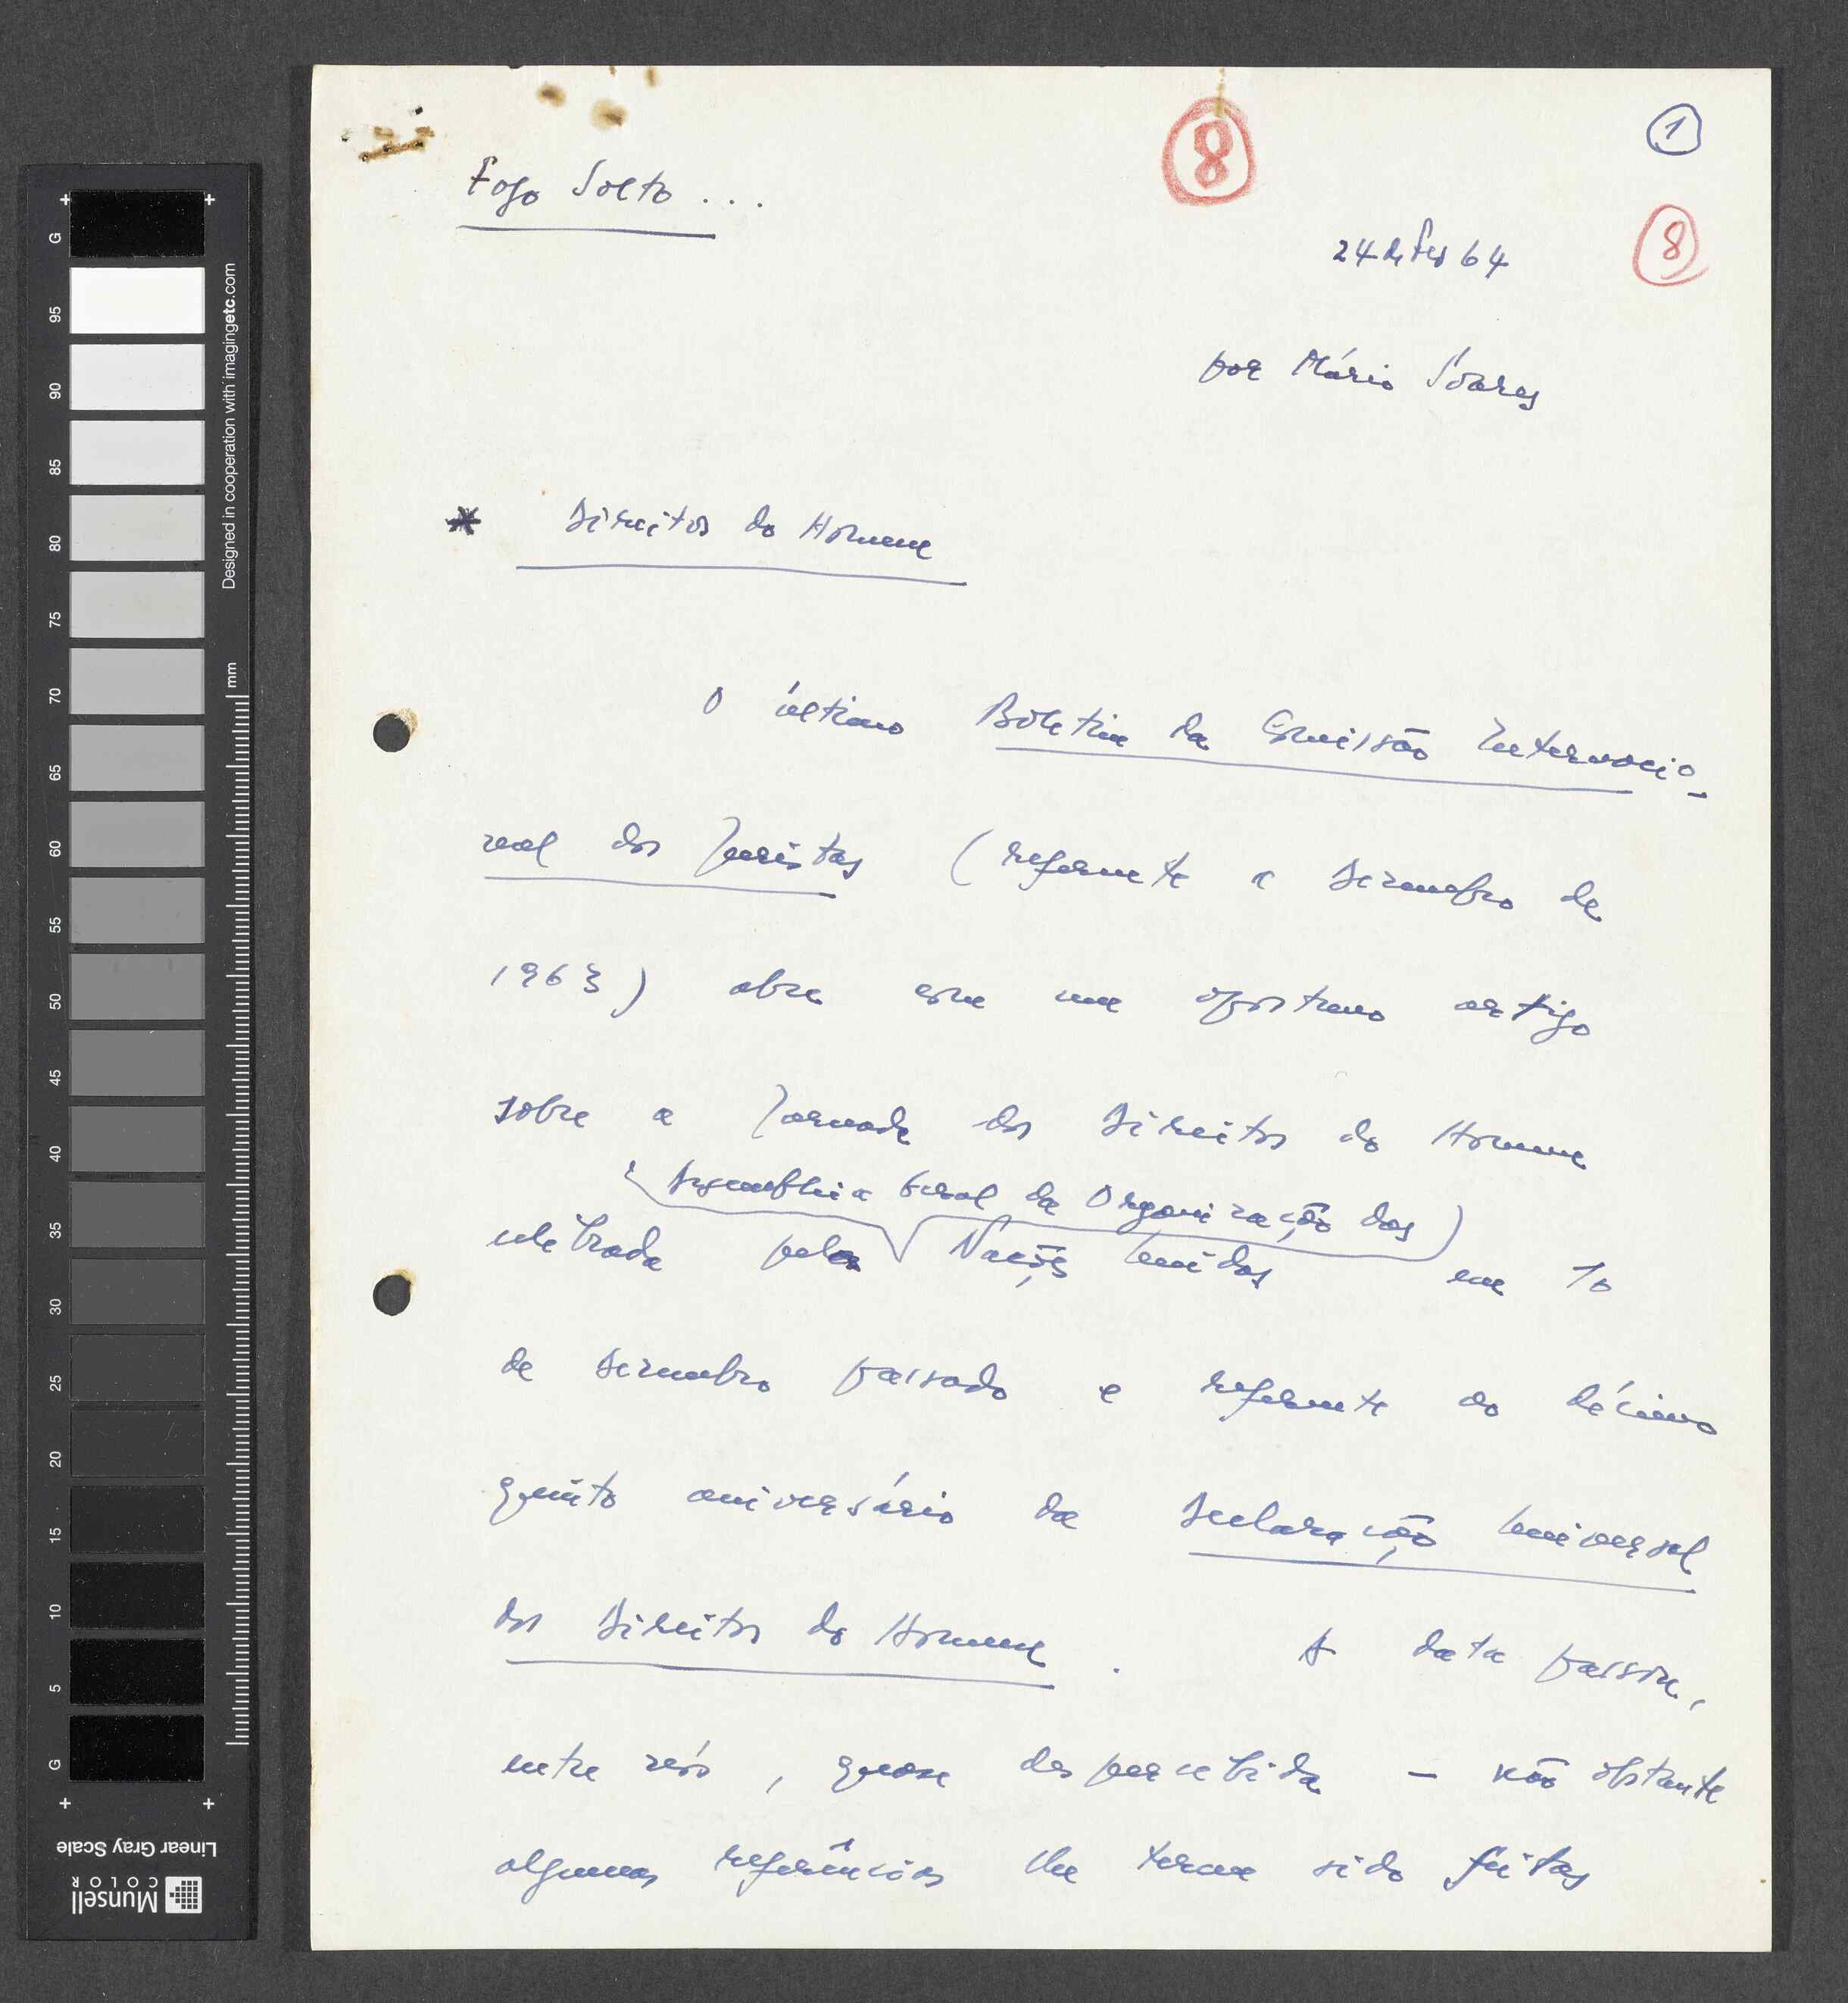 8
1
Fogo Solto...
24 de Fev 64
8
por Mário Soares
* Direitos do Homem
O último Boletim da Comissão Internacio-
nal dos Juristas (referente a Dezembro de
1963) abre com um oportuno artigo
sobre a Jornada dos Direitos do Homem
(Assembleia Geral da Organização das)
celebrada pela Nações Unidas em 10
de Dezembro passado e referente ao décimo
quinto aniversário da Declaração Universal
dos Direitos do Homem. A data passou,
entre nós, quase despercebida – não obstante
algumas referências lhe terem sido feitas
G
95
90
85
80
75
70
65
60
55
50
45
40
35
30
25
20
15
10
5
G
mm
Designed in cooperation with imagingetc.com
Linear Gray Scale
Munsell
COLOR